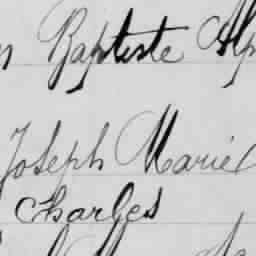 Baptiste Alp
Joseph Marie
Charles